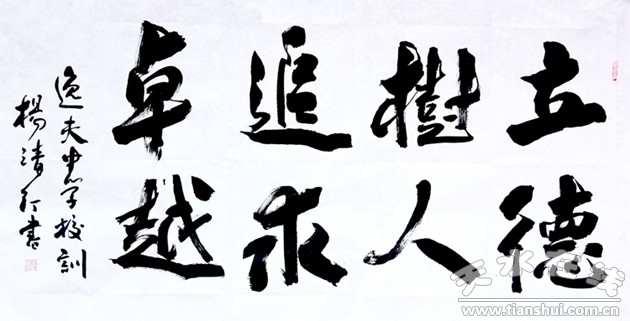 立德
樹人
追求
卓越
逸夫中学校訓
楊清汀書
天水在线
www.tianshui.com.cn